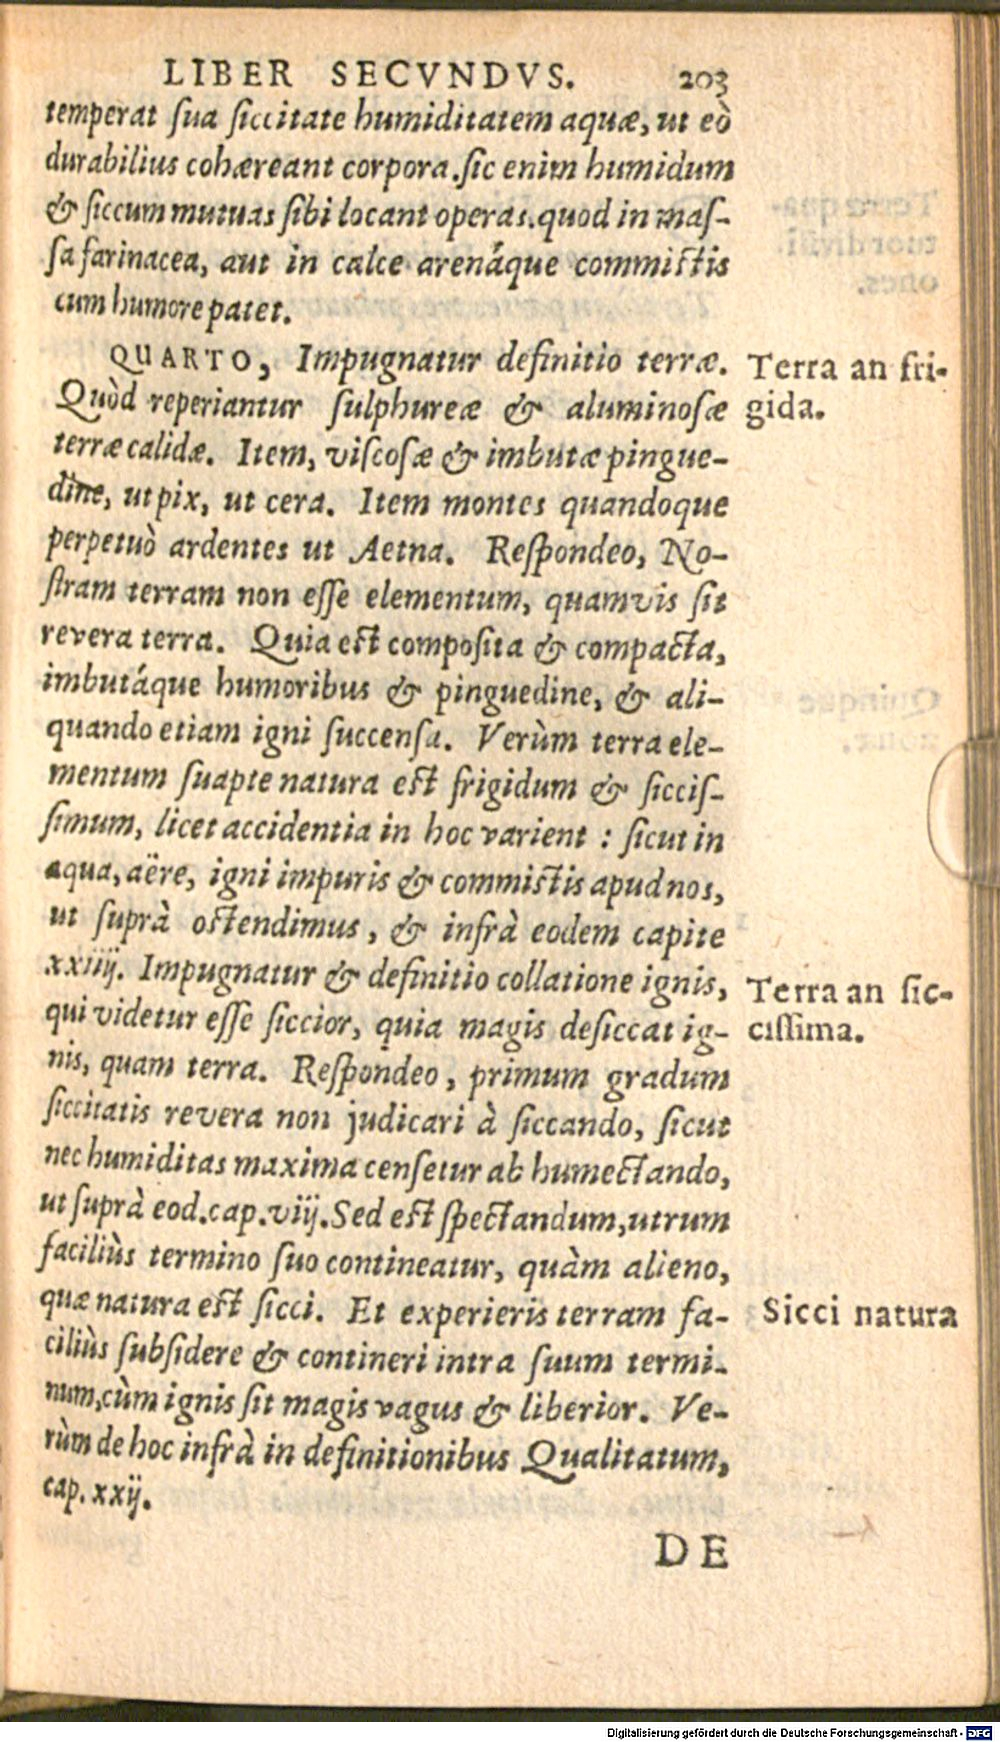 LIBER SECVNDVS. 203
temperat ſua ſiccitate humiditatem aquæ, ut eò
durabilius cohæreant corpora. ſic enim humidum
& ſiccum mutuas ſibi locant operas. quod in maſ-
ſa farinacea, aut in calce arenáque commiſtis
cum humore patet.
QUARTO, Impugnatur definitio terræ.
Terra an fri-
Quòd reperiantur ſulphureæ & aluminoſæ
gida.
terræ calidæ. Item, viſcoſæ & imbutæ pingue-
dine, ut pix, ut cera. Item montes quandoque
perpetuò ardentes ut Aetna. Reſpondeo, No-
ſtram terram non eſſe elementum, quamvis ſit
revera terra. Quia eſt compoſita & compacta,
imbutáque humoribus & pinguedine, & ali-
quando etiam igni ſuccenſa. Verùm terra ele-
mentum ſuapte natura eſt frigidum & ſicciſ-
ſimum, licet accidentia in hoc varient : ſicut in
aqua, aëre, igni impuris & commiſtis apud nos,
ut ſuprà oſtendimus, & infrà eodem capite
xxiiij. Impugnatur & definitio collatione ignis,
Terra an ſic-
qui videtur eſſe ſiccior, quia magis deſiccat ig-
ciſſima.
nis, quam terra. Reſpondeo, primum gradum
ſiccitatis revera non judicari à ſiccando, ſicut
nec humiditas maxima cenſetur ab humectando,
ut ſuprà eod. cap. viij. Sed eſt ſpectandum, utrum
faciliùs termino ſuo contineatur, quàm alieno,
quæ natura eſt ſicci. Et experieris terram fa-
Sicci natura
ciliùs ſubſidere & contineri intra ſuum termi-
num, cùm ignis ſit magis vagus & liberior. Ve-
rùm de hoc infrà in definitionibus Qualitatum,
cap. xxij.
DE
Digitalisierung gefördert durch die Deutsche Forschungsgemeinschaft - DFG